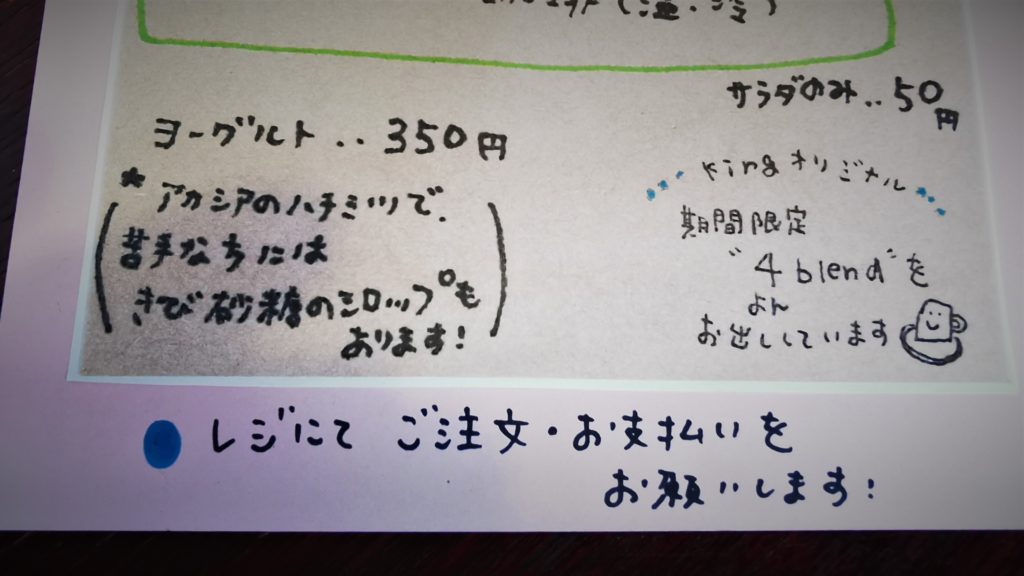 (温・冷)
サラダのみ‥50円
ヨーグルト‥350円
* アカシアのハチミツで、
苦手なちには
きび砂糖のシロップも
あります!
Kingオリジナル
期間限定
"4 blend"を
よん
お出ししています
レジにて ご注文・お支払いを
お願いします!